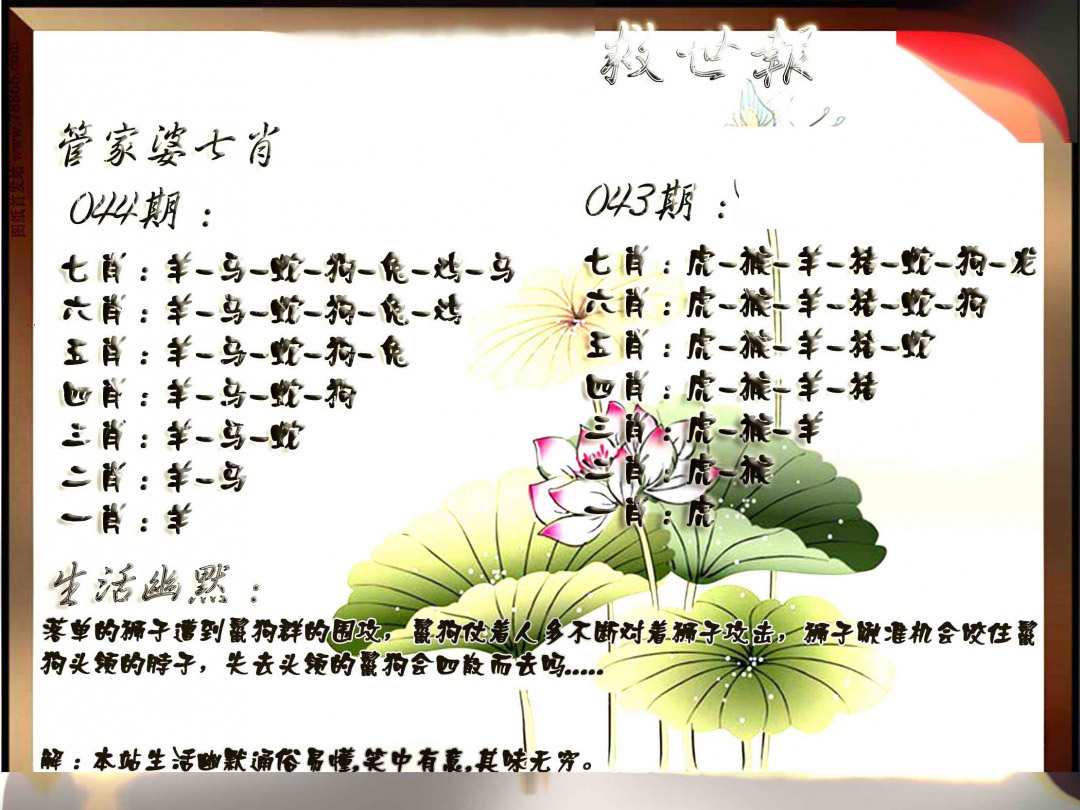 救世報
管家婆七肖
044期：
七肖：羊-马-蛇-狗-兔-鸡-马
六肖：羊-马-蛇-狗-兔-鸡
五肖：羊-马-蛇-狗-兔
四肖：羊-马-蛇-狗
三肖：羊-马-蛇
二肖：羊-马
一肖：羊
043期：
七肖：虎-猴-羊-猪-蛇-狗-龙
六肖：虎-猴-羊-猪-蛇-狗
五肖：虎-猴-羊-猪-蛇
四肖：虎-猴-羊-猪
三肖：虎-猴-羊
二肖：虎-猴
一肖：虎
生活幽默：
落单的狮子遭到鬣狗群的围攻，鬣狗仗着人多不断对着狮子攻击，狮子瞅准机会咬住鬣
狗头领的脖子，失去头领的鬣狗会四散而去吗.....
解：本站生活幽默通俗易懂,笑中有意,其味无穷。
图纸首发站